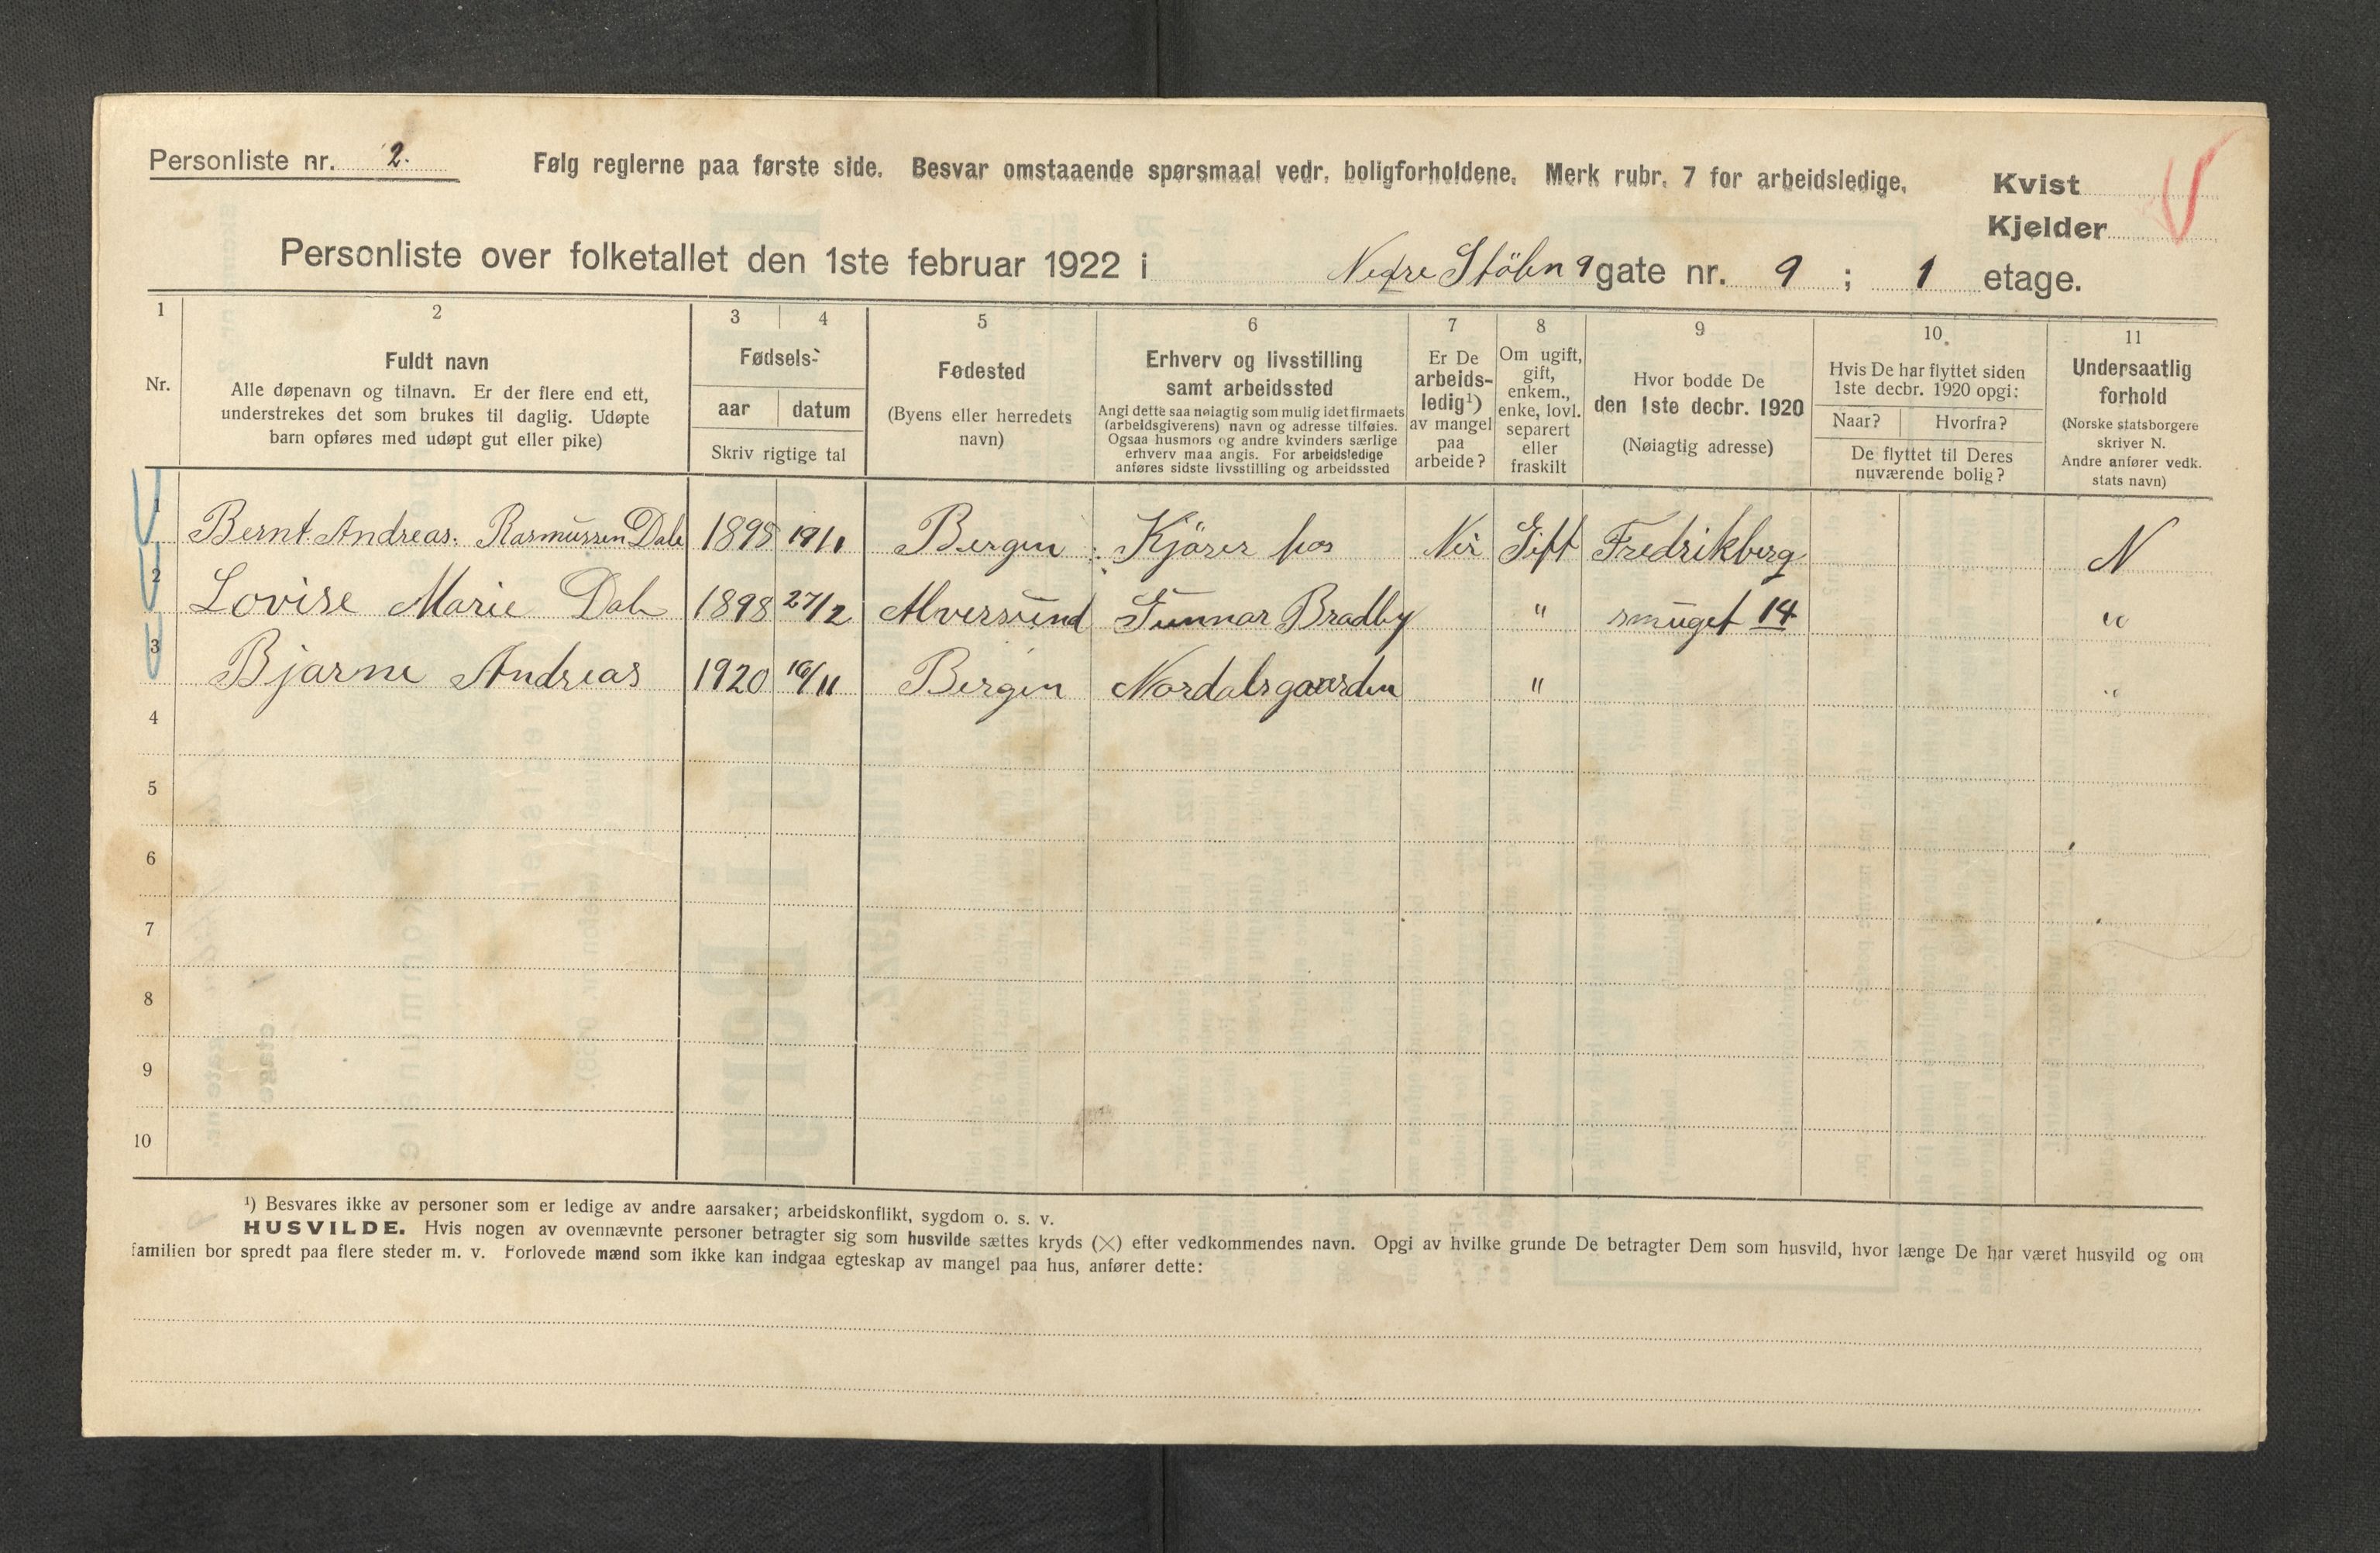 Personliste nr. 2.
Følg reglerne paa første side. Besvar omstaaende spørsmaal vedr. boligforholdene. Merk rubr. 7 for arbeidsledige.
Kvist
Kjelder
Personliste over folketallet den 1ste februar 1922 i Nedre Stölen 9 gate nr. 9 ; 1 etage.
1 2 3 4 5 6 7 8 9 10. 11
Nr.
Fuldt navn
Alle døpenavn og tilnavn. Er der flere end ett,
understrekes det som brukes til daglig. Udøpte
barn opføres med udøpt gut eller pike)
Fødsels-
aar datum
Skriv rigtige tal
Fødested
(Byens eller herredets
navn)
Erhverv og livsstilling
samt arbeidssted
Angi dette saa nøiagtig som mulig idet firmaets
(arbeidsgiverens) navn og adresse tilføies.
Ogsaa husmors og andre kvinders særlige
erhverv maa angis. For arbeidsledige
anføres sidste livsstilling og arbeidssted
Er De
arbeids-
ledig¹)
av mangel
paa
arbeide?
Om ugift,
gift,
enkem.,
enke, lovl.
separert
eller
fraskilt
Hvor bodde De
den 1ste decbr. 1920
(Nøiagtig adresse)
Hvis De har flyttet siden
1ste decbr. 1920 opgi:
Naar? Hvorfra?
De flyttet til Deres
nuværende bolig?
Undersaatlig
forhold
(Norske statsborgere
skriver N.
Andre anfører vedk.
stats navn)
1 Bernt Andreas. Rasmussen Dale 1898 19/1 Bergen Kjörer hos Nei Gift Fredrikberg N
2 Lovise Marie Dale 1898 27/2 Alversund Gunnar Bradby " smuget 14 "
3 Bjarne Andreas 1920 16/11 Bergen Nordalsgaarden " "
4
5
6
7
8
9
10
¹) Besvares ikke av personer som er ledige av andre aarsaker; arbeidskonflikt, sygdom o. s. v.
HUSVILDE. Hvis nogen av ovennævnte personer betragter sig som husvilde sættes kryds (×) efter vedkommendes navn. Opgi av hvilke grunde De betragter Dem som husvild, hvor længe De har været husvild og om
familien bor spredt paa flere steder m. v. Forlovede mænd som ikke kan indgaa egteskap av mangel paa hus, anfører dette: